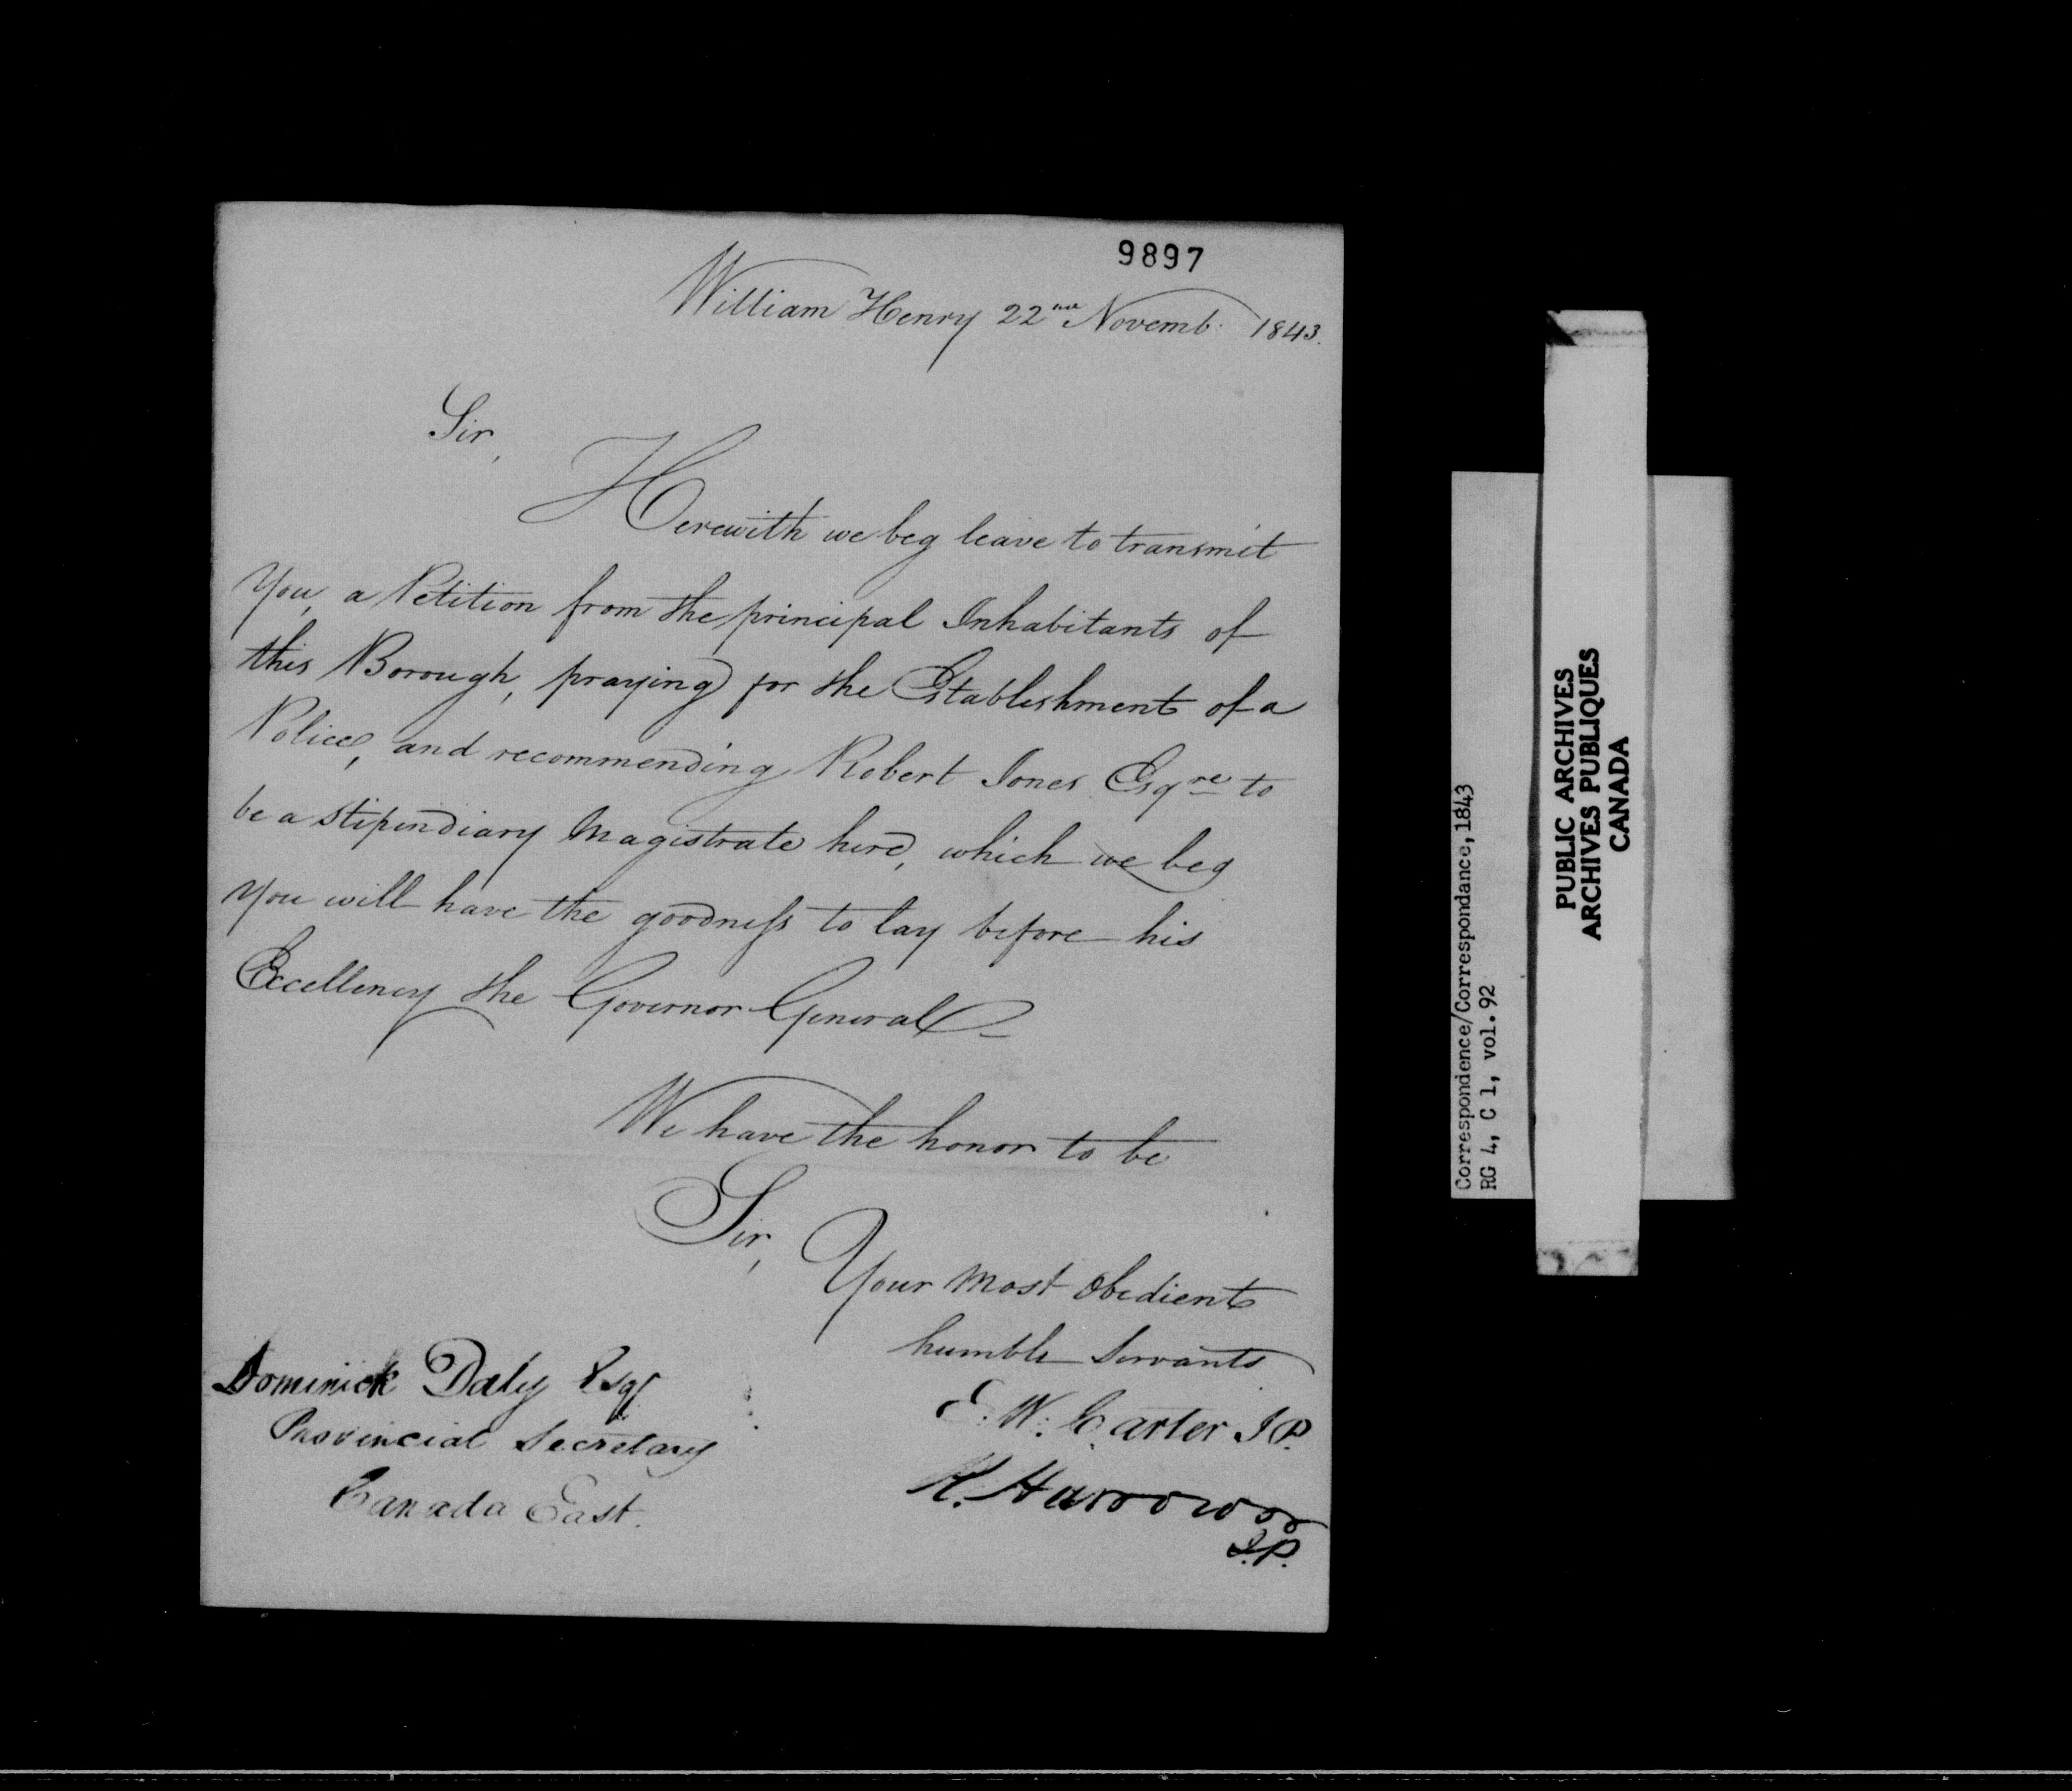 9897
William Henry 22nd Novemb: 1843.
Sir,
Herewith we beg leave to transmit
You, a Petition from the principal Inhabitants of
this Borough, praying for the Establishment of a
Police, and recommending Robert Jones Esqre to
be a stipendiary Magistrate here, which we beg
you will have the goodness to lay before his
Excellency the Governor General
We have the honor to be
Sir,
Your most obedient
humble Servants
E. W. Carter J.P.
J.P.
Dominick Daly Esqr
Provincial Secretary
Canada East.
Correspondence/Correspondance, 1843
RG 4, C 1, vol. 92
PUBLIC ARCHIVES
ARCHIVES PUBLIQUES
CANADA